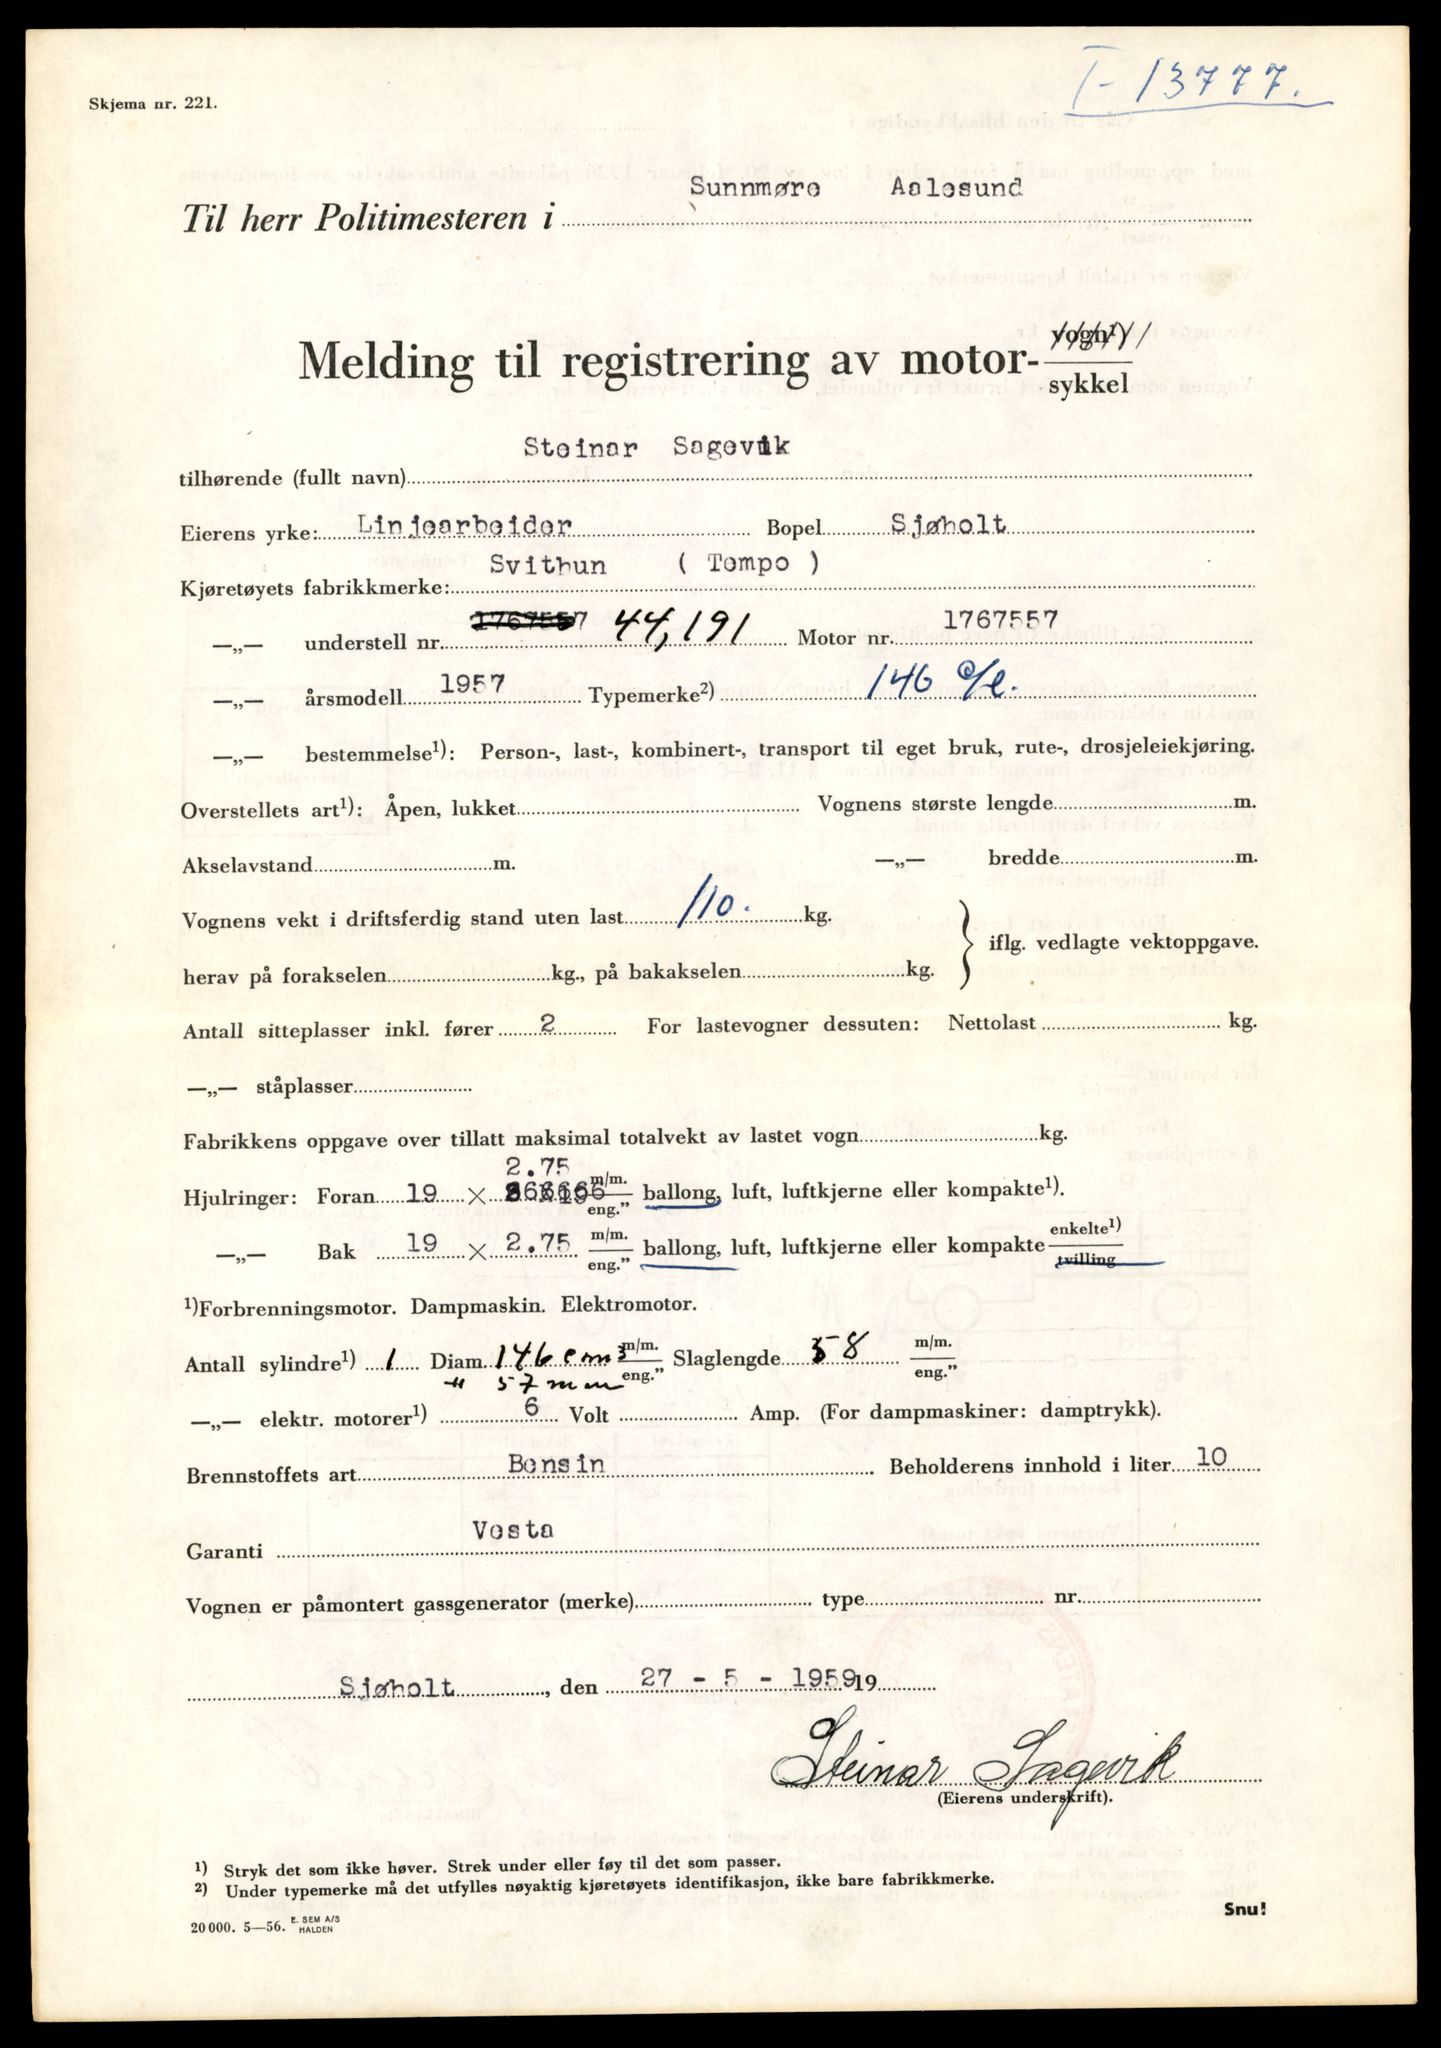 I-13777.
Skjema nr. 221.
Sunnmøre Aalesund
Til herr Politimesteren i
Melding til registrering av motor- vogn¹) / sykkel
Steinar Sagevik
tilhørende (fullt navn)
Eierens yrke: Linjearbeider Bopel Sjøholt
Svithun ( Tempo )
Kjøretøyets fabrikkmerke:
—„— understell nr. 1767557 44,191 Motor nr. 1767557
—„— årsmodell 1957 Typemerke²) 146
—„— bestemmelse¹): Person-, last-, kombinert-, transport til eget bruk, rute-, drosjeleiekjøring.
Overstellets art¹): Åpen, lukket Vognens største lengde m.
Akselavstand m. —„— bredde m.
Vognens vekt i driftsferdig stand uten last 110. kg.
iflg. vedlagte vektoppgave.
herav på forakselen kg., på bakakselen kg.
Antall sitteplasser inkl. fører 2 For lastevogner dessuten: Nettolast kg.
—„— ståplasser
Fabrikkens oppgave over tillatt maksimal totalvekt av lastet vogn kg.
2.75
Hjulringer: Foran 19 × m/m. eng.” ballong, luft, luftkjerne eller kompakte¹).
—„— Bak 19 × 2.75 m/m. eng.” ballong, luft, luftkjerne eller kompakte enkelte¹) tvilling
¹)Forbrenningsmotor. Dampmaskin. Elektromotor.
Antall sylindre¹) 1 Diam. 146 cm3 m/m. eng.” Slaglengde 58 m/m. eng.”
" 57 mm
—„— elektr. motorer¹) 6 Volt Amp. (For dampmaskiner: damptrykk).
Brennstoffets art Bensin Beholderens innhold i liter 10
Vesta
Garanti
Vognen er påmontert gassgenerator (merke) type nr.
Sjøholt, den 27 - 5 - 1959 19
Steinar Sagevik
(Eierens underskrift).
¹) Stryk det som ikke høver. Strek under eller føy til det som passer.
²) Under typemerke må det utfylles nøyaktig kjøretøyets identifikasjon, ikke bare fabrikkmerke.
Snu!
20 000. 5—56. E. SEM A/S HALDEN